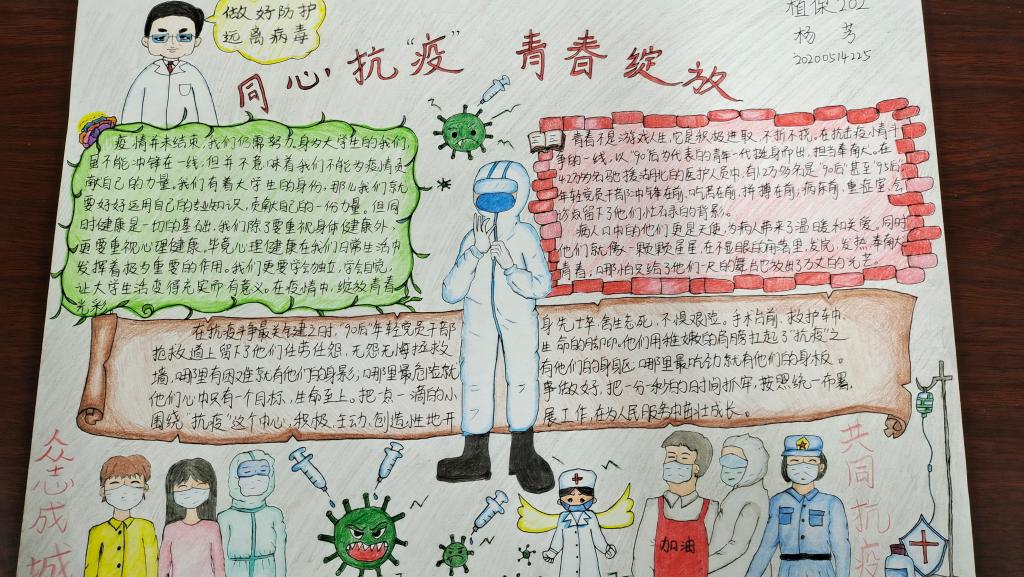 做好防护
远离病毒
植保202
杨芳
20200514225
同心抗"疫" 青春绽放
疫情并未结束,我们仍需努力,身为大学生的我们,
虽不能冲锋在一线,但并不意味着我们不能为疫情贡
献自己的力量。我们有着大学生的身份,那么我们就
要好好运用自己的专业知识,贡献自己的一份力量。但同
时健康是一切的基础,我们除了要重视身体健康外,
更要重视心理健康。毕竟心理健康在我们日常生活中
发挥着极为重要的作用。我们更要学会独立,学会自觉,
让大学生活变得充实而有意义。在疫情中,绽放青春
光彩。
青春不是游戏人生,它是积极进取,不折不挠。在抗击疫情斗
争的一线,以"90后"为代表的青年一代挺身而出,担当奉献。在
4.2万多名驰援湖北的医护人员中,有1.2万多名是"90后"甚至"95后"
年轻党员干部冲锋在前,吃苦在前,拼搏在前,病床前,重症室,
留下了他们的背影。
病人口中的他们更是天使,为病人带来了温暖和关爱。同时
他们就像一颗颗星星,在不显眼的角落里,发光,发热,奉献大
青春,哪怕只给了他们一尺的舞台也放出了万丈的光芒。
在抗疫斗争最关键之时,"90后"年轻党员干部身先士卒,舍生忘死,不惧艰险。手术台前,救护车中,
抢救道上留下了他们任劳任怨,无怨无悔拯救生命的脚印。他们用稚嫩的肩膀扛起了"抗疫"之
墙,哪里有困难就有他们的身影;哪里最危险就有他们的身躯,哪里最吃劲就有他们的身板。
他们心中只有一个目标,生命至上。把一点一滴的小事做好,把一分一秒的时间抓牢,按照统一布署,
围绕"抗疫"这个中心,积极、主动、创造性地开展工作,在为人民服务中茁壮成长。
众志成城
共同抗疫
加油